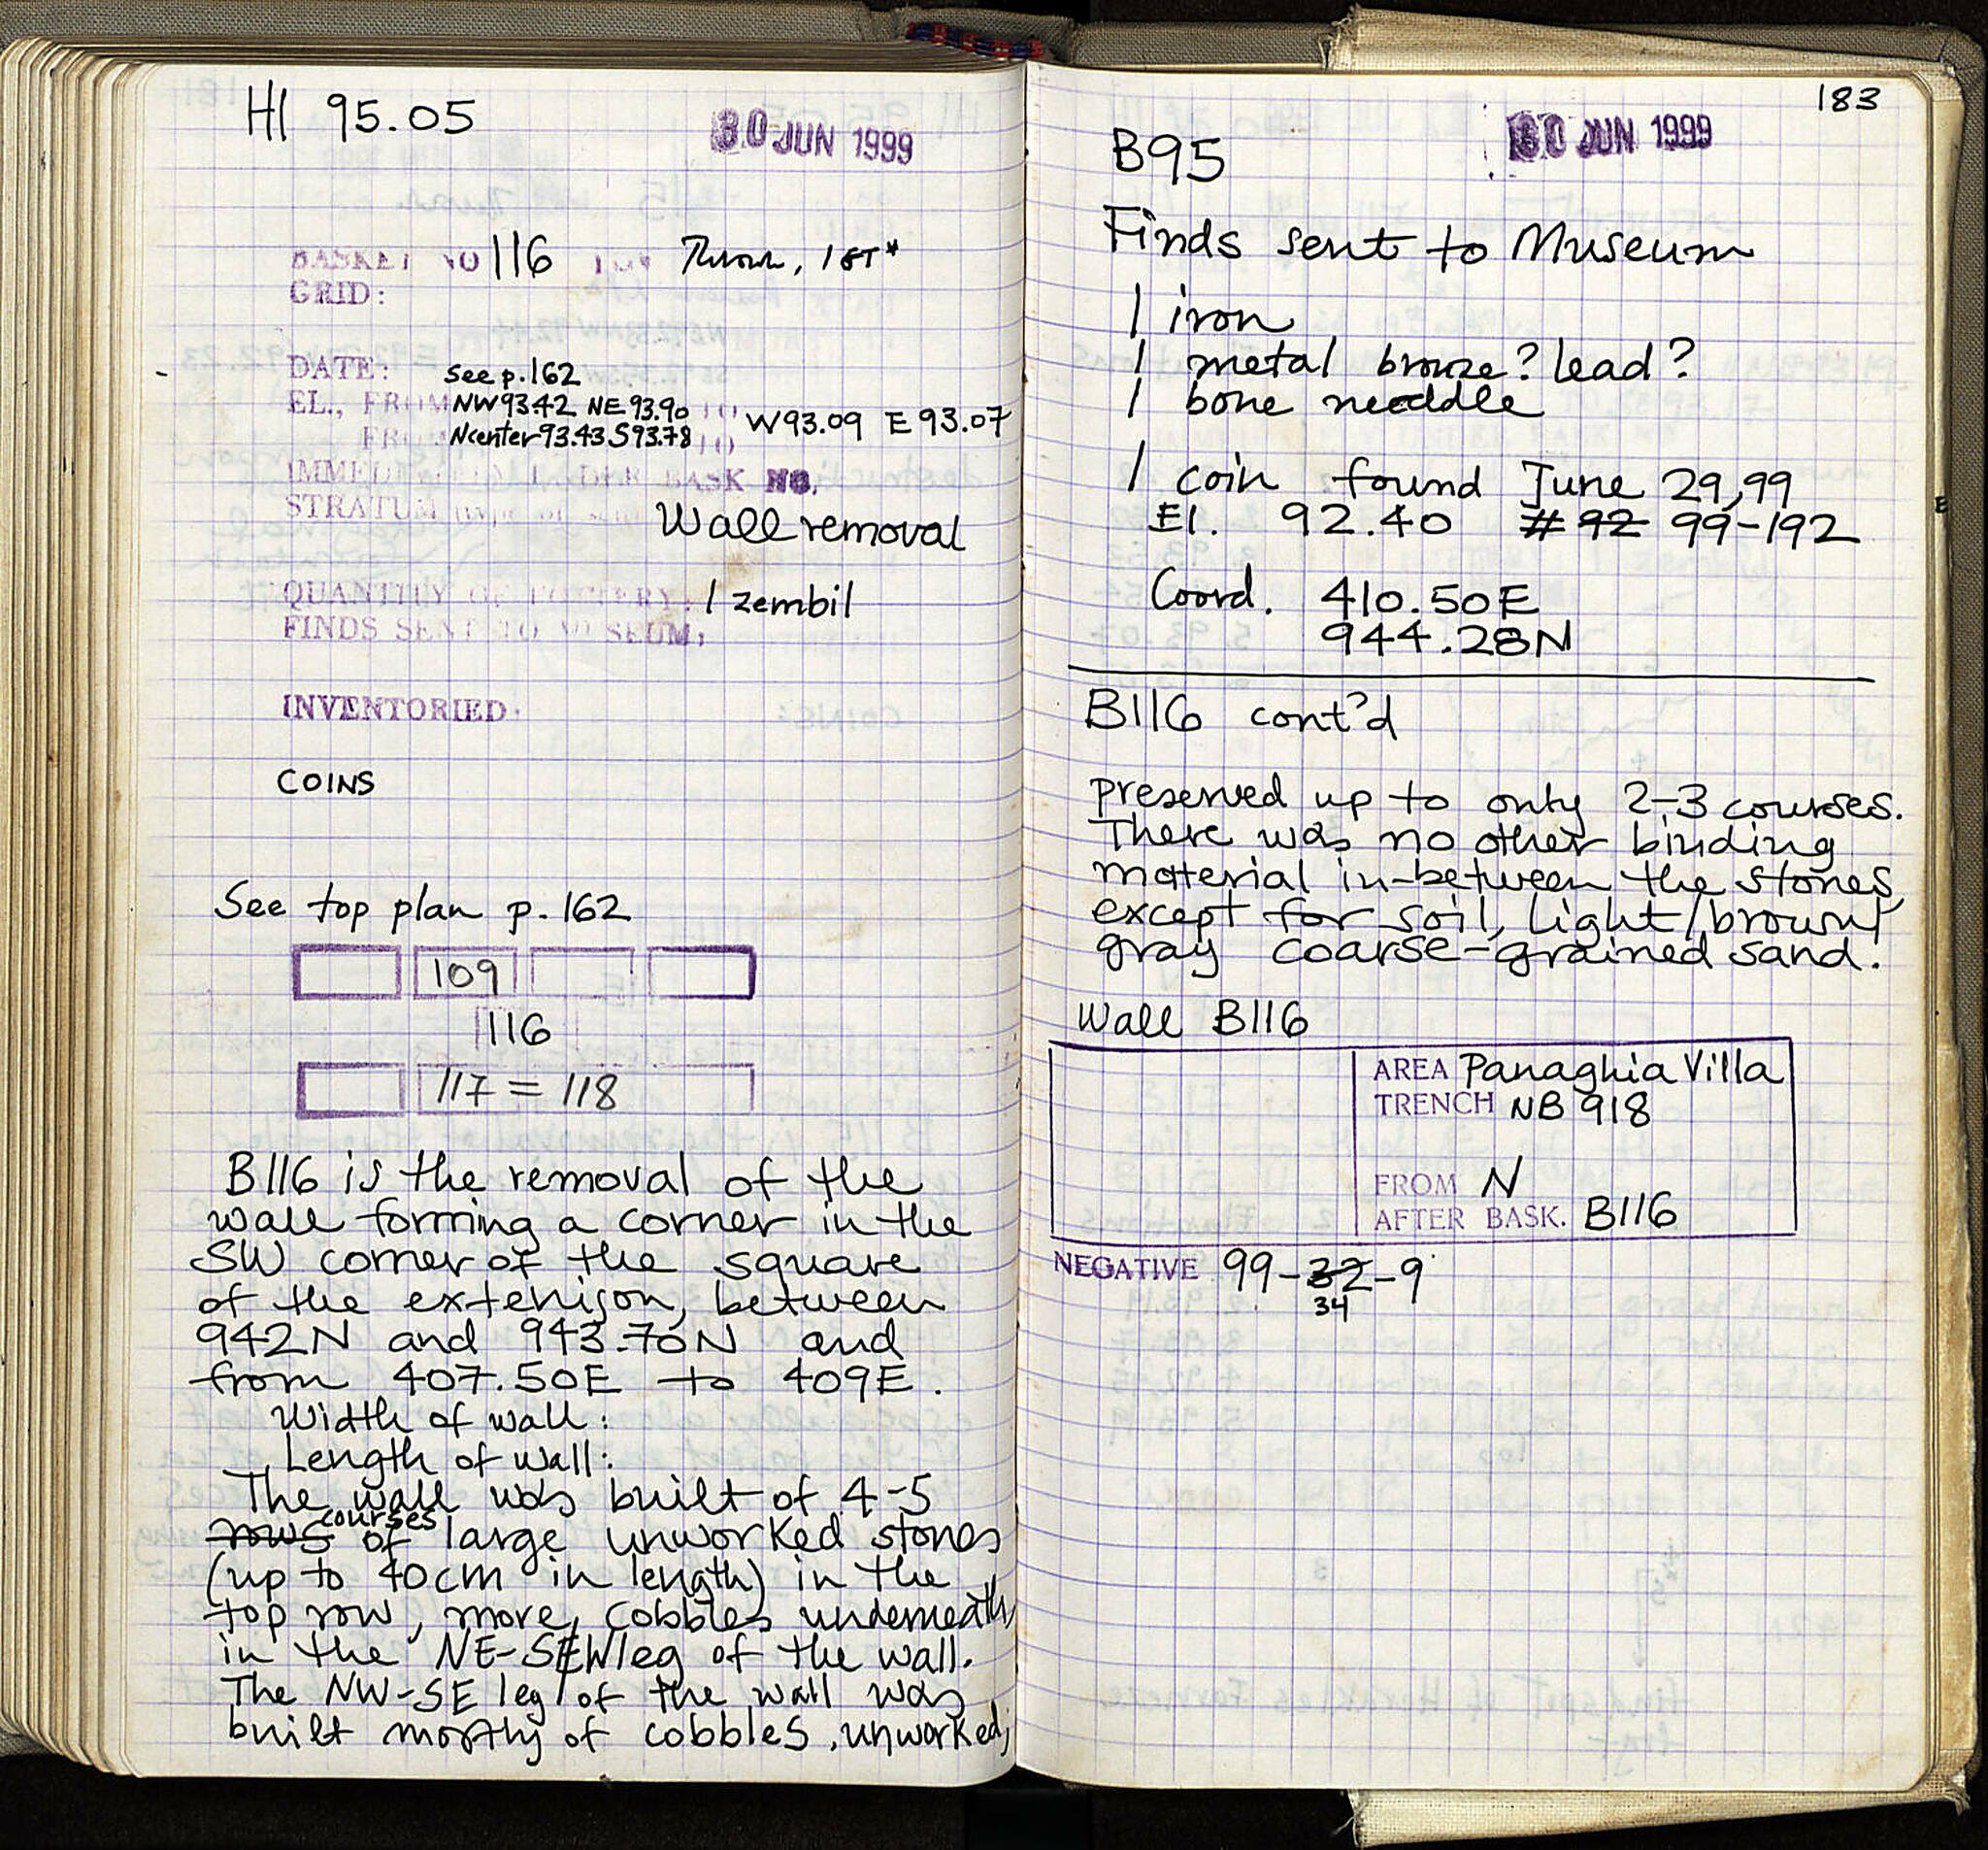 HI 95.05
30 JUN 1999
BASKET NO 116 Roman, 1 ST*
GRID:
DATE: see p.162
EL., FROM NW93.42 NE 93.90 TO W93.09 E 93.07
FROM Ncenter93.43 S93.78 TO
IMMEDIATELY UNDER BASK NO.
STRATUM
Wall removal
QUANTITY OF POTTERY: 1 zembil
FINDS SENT TO MUSEUM:
INVENTORIED:
COINS
See top plan p. 162
109
116
117 = 118
B116 is the removal of the
wall forming a corner in the
SW corner of the square
of the extenison, between
942N and 943.70N and
from 407.50E to 409E.
Width of wall:
Length of wall:
The wall was built of 4-5
rows courses of large unworked stones
(up to 40cm in length) in the
top row, more, cobbles underneath,
in the NE-SEW leg of the wall.
The NW-SE leg of the wall was
built mostly of cobbles, unworked;
183
30 JUN 1999
B95
Finds sent to Museum
1 iron
1 metal bronze? lead?
1 bone needdle
1 coin found June 29,99
El. 92.40 # 92 99-192
Coord. 410.50E
944.28N
B116 cont'd
preserved up to only 2-3 courses.
There was no other binding
material in-between the stones,
except for soil, light/brown/
gray coarse-grained sand.
Wall B116
AREA Panaghia Villa
TRENCH NB 918
FROM N
AFTER BASK. B116
NEGATIVE 99-32-9
34